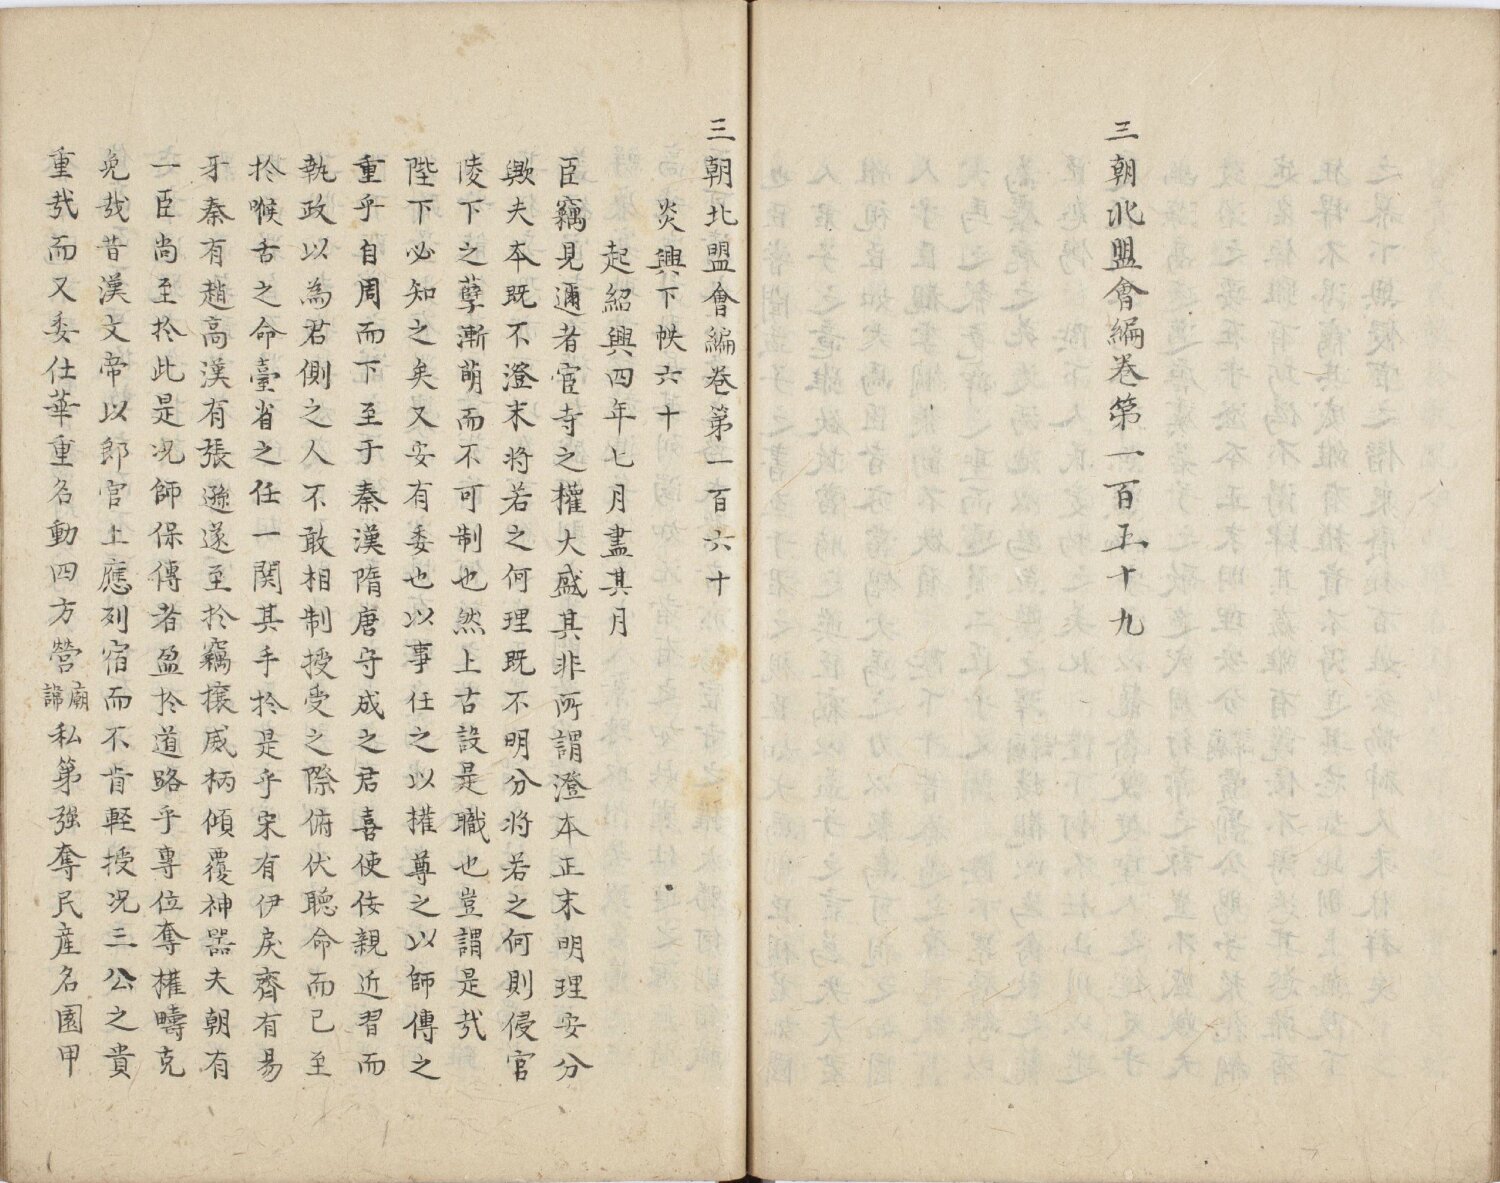 三朝北盟會編卷第一百五十九
三朝北盟會編卷第一百六十
炎興下帙六十
起紹興四年七月盡其月
臣竊見邇者宦寺之權大盛其非所謂澄本正末明理安分
歟夫本既不澄末將若之何理既不明分將若之何則侵官
陵下之孽漸萌而不可制也然上古設是職也豈謂是哉
陛下必知之矣又安有委也以事任之以權尊之以師傅之
重乎自周而下至于秦漢隋唐守成之君喜使佞親近習而
執政以為君側之人不敢相制授受之際俯伏聽命而已至
於喉舌之命臺省之任一関其手於是乎宋有伊戾齊有易
牙秦有趙高漢有張遜遂至於竊攘威柄傾覆神器夫朝有
一臣尚至於此是况師保傅者盈於道路乎專位奪權疇克
免哉昔漢文帝以郎官上應列宿而不肯輕授况三公之貴
重哉而又委仕華重名動四方營廟諱私第强奪民産名園甲